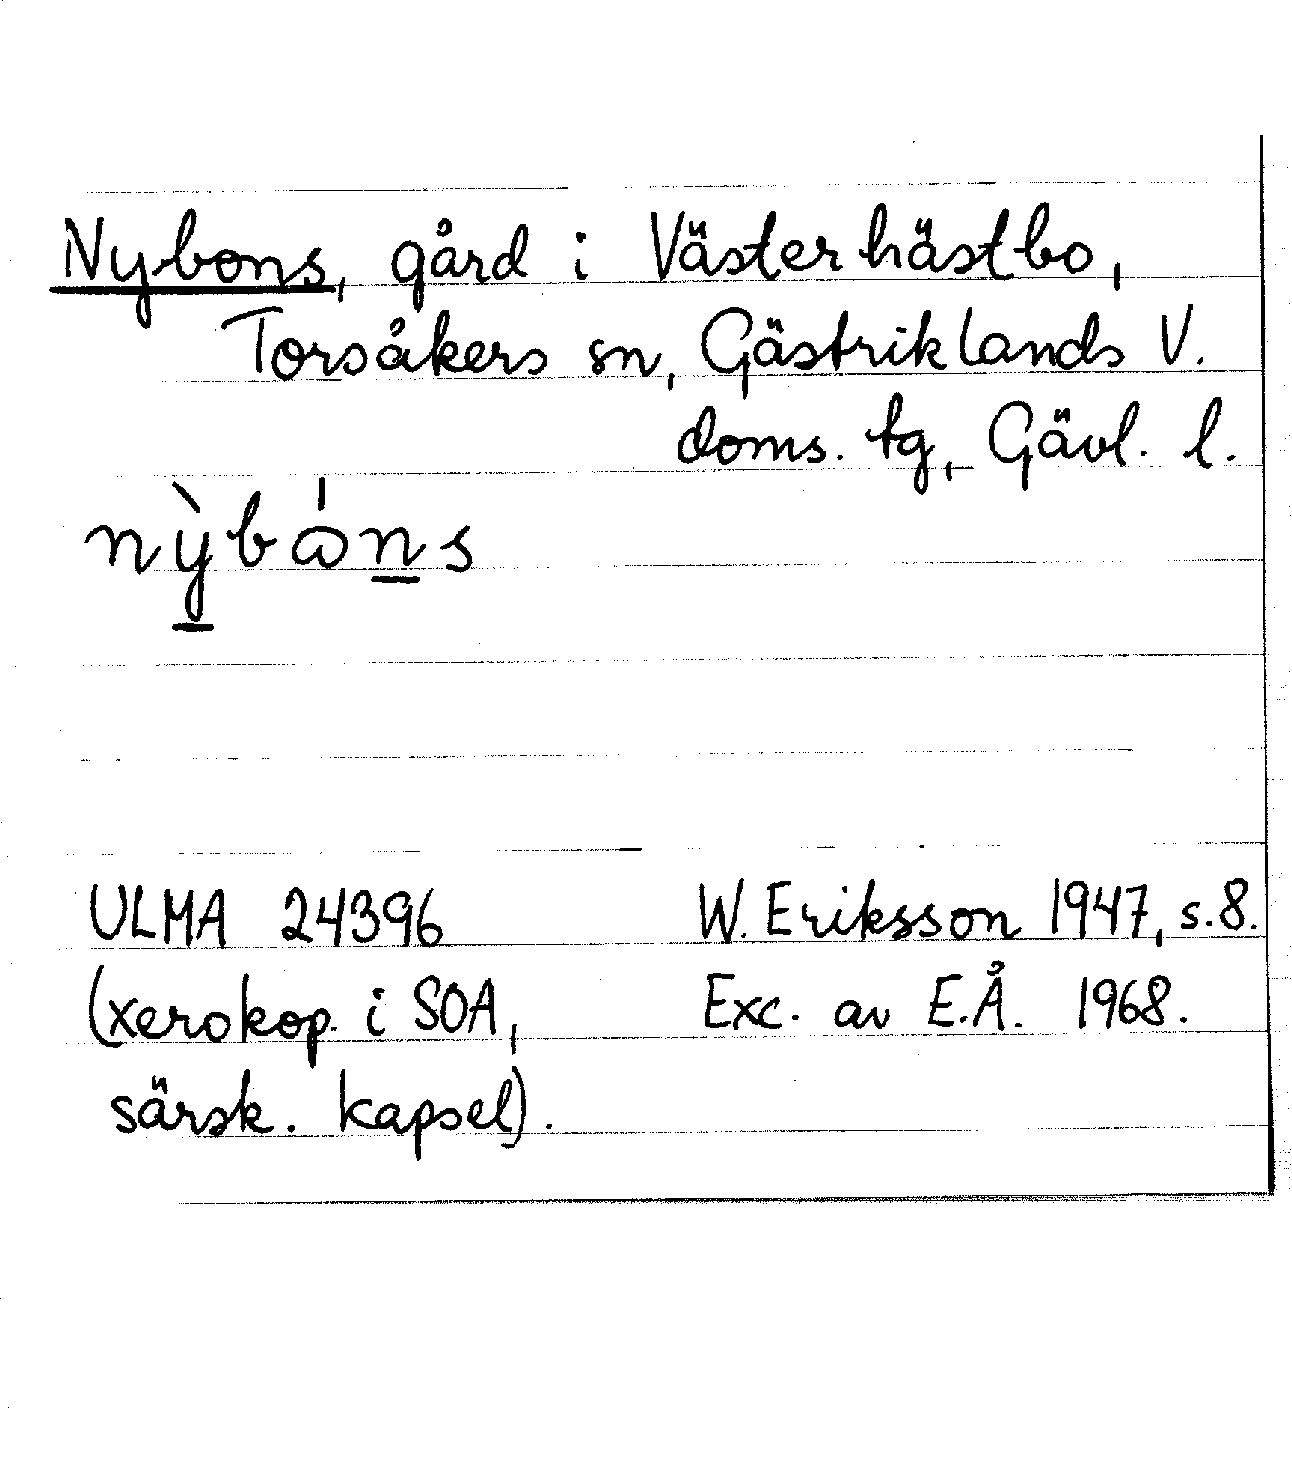 Nybons, gård i Västerhästbo,
Torsåkers sn, Gästriklands V.
doms. tg, Gävl. l.
nỳbɷ́ns
ULMA 24396 W. Eriksson 1947, s. 8.
(xerokop. i SOA, Exc. av E.Å. 1968.
särsk. kapsel).